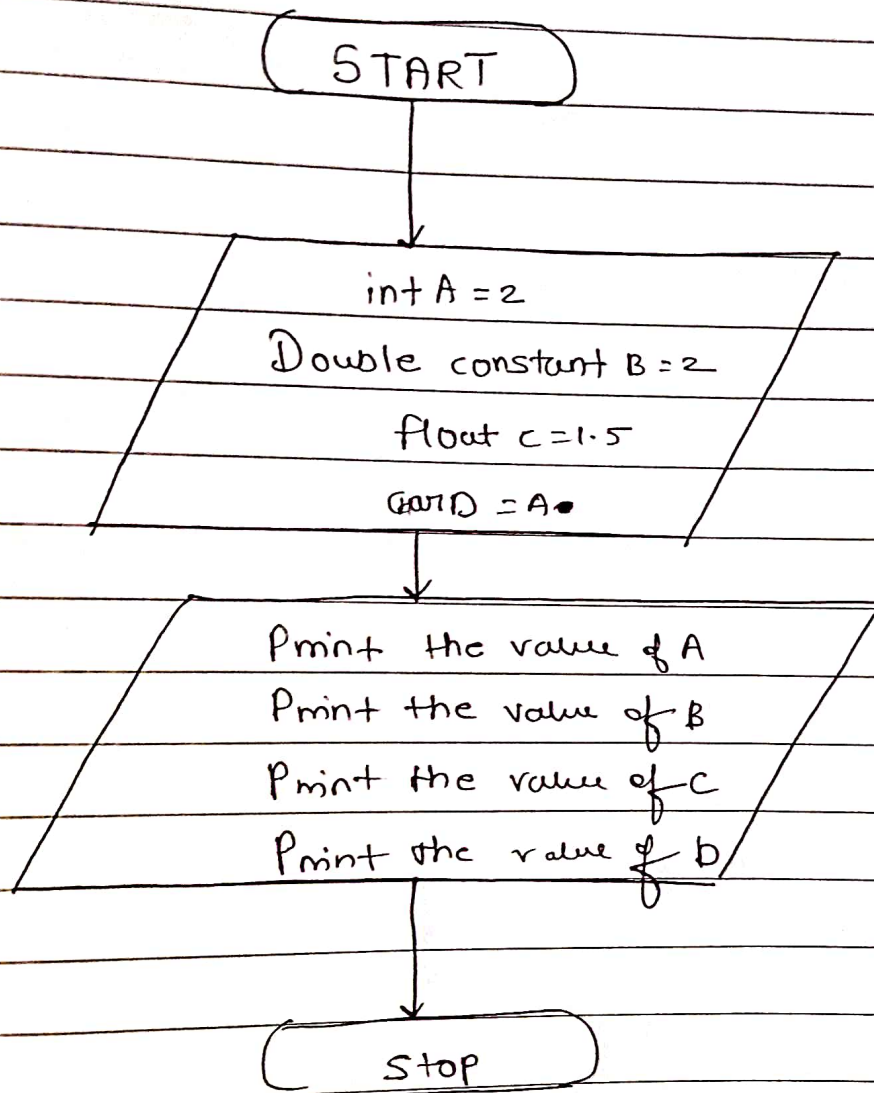 START
int A = 2
Double constant B = 2
float c = 1.5
Char D = A
Print the value of A
Print the value of B
Print the value of C
Print the value of D
Stop